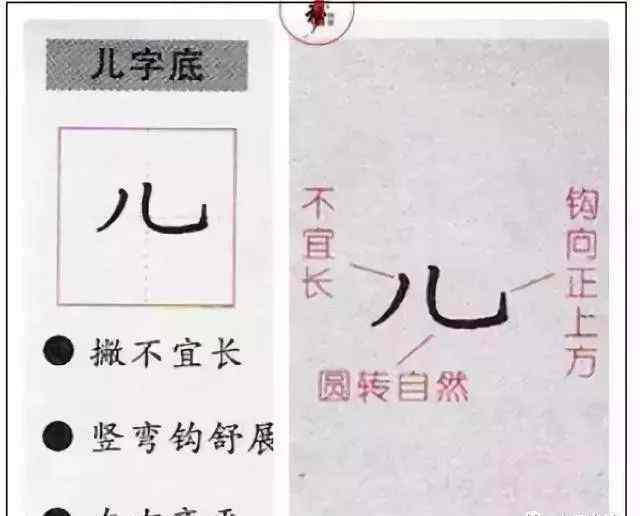 儿字底
儿
撇不宜长
竖弯钩舒展
不宜长
钩向正上方
儿
圆转自然